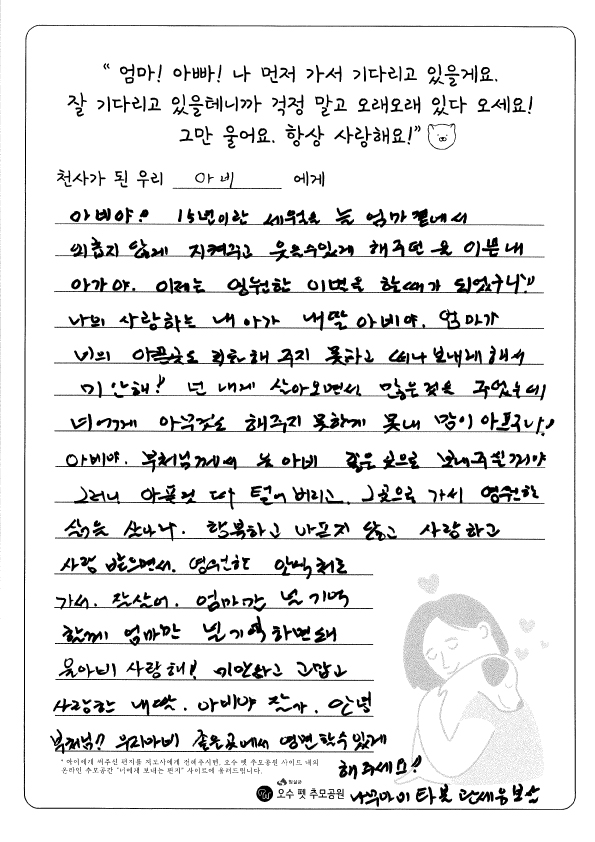 “ 엄마! 아빠! 나 먼저 가서 기다리고 있을게요.
잘 기다리고 있을테니까 걱정 말고 오래오래 있다 오세요!
그만 울어요. 항상 사랑해요!”
천사가 된 우리 아비 에게
아비야! 15년이란 세월을 늘 엄마 곁에서
외롭지 않게 지켜주고 웃을수있게 해주던 이쁜 내
아가야. 이제는 영원한 이별을 할때가 되었구나
나의 사랑하는 내 아가 내딸 아비야. 엄마가
너의 아픔도 해 주지 못하고 떠나보내게 해서
미안해! 넌 내게 살아오면서 많은것을 주었는데
너에게 아무것도 해주지 못한게 못내 맘이 아프구나!
아비야. 부처님께서 늘 아비 좋은 곳으로 보내주실꺼야
그러니 아픈것 다 털어버리고 그곳으로 가서 영원한
삶을 살아나. 행복하고 아프지 않고 사랑하고
사랑 받으면서. 영원한 안식처로
가서. 잘살어. 엄마가 널 기억
할께 엄마만 널기억하면돼
울아비 사랑해! 미안하고 고맙고
사랑한 내딸. 아비야 잘가. 안녕
부처님? 우리아비 좋은곳에서 영면할수있게
해주세요!
나무아미타불 관세음보살
* 아이에게 써주신 편지를 지도사에게 전해주시면, 오수 펫 추모공원 사이트 내의
온라인 추모공간 “너에게 보내는 편지” 사이트에 올려드립니다.
임실군
오수 펫 추모공원